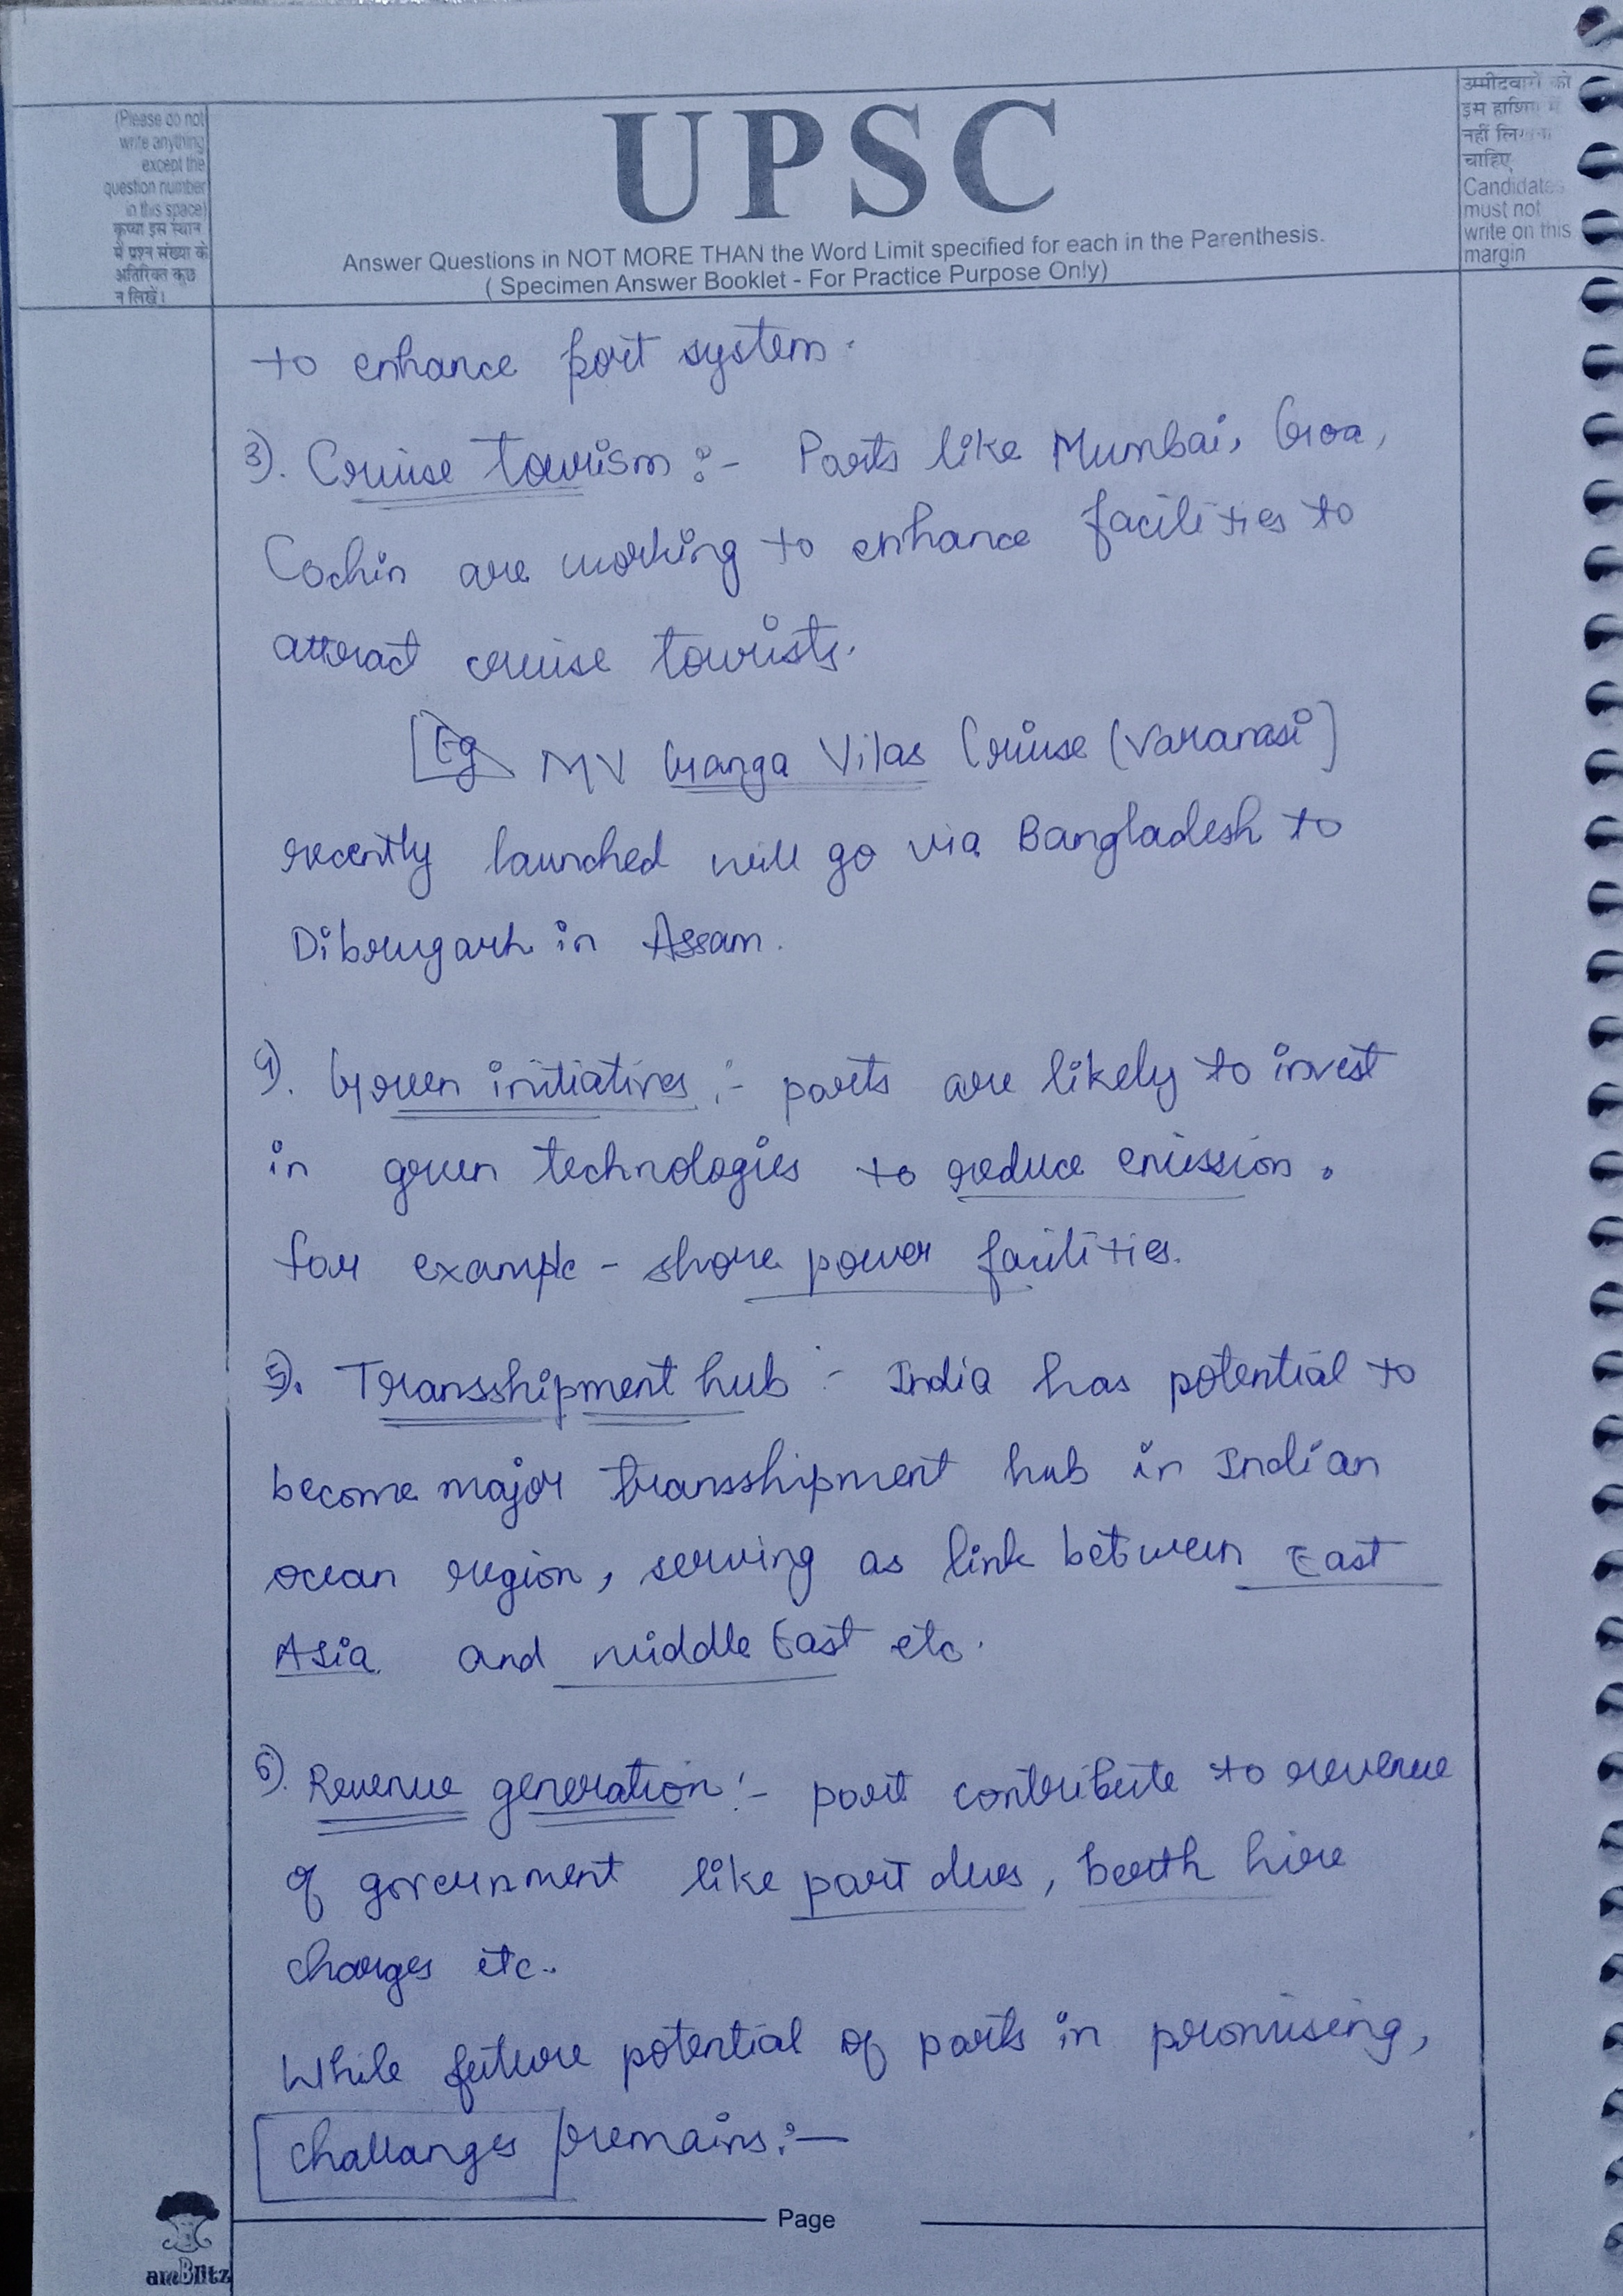 (Please do not
write anything
except the
question number
in this space)
कृपया इस स्थान
में प्रश्न संख्या के
अतिरिक्त कुछ
न लिखें।
UPSC
Answer Questions in NOT MORE THAN the Word Limit specified for each in the Parenthesis.
( Specimen Answer Booklet - For Practice Purpose Only)
उम्मीदवारों को
इस हाशिए में
नहीं लिखना
चाहिए
Candidates
must not
write on this
margin
to enhance port system.
3). Cruise tourism :- Ports like Mumbai, Goa,
Cochin are working to enhance facilities to
attract cruise tourists.
[Eg MV Ganga Vilas Cruise (Varanasi]
recently launched will go via Bangladesh to
Dibrugarh in Assam.
4). Green initiatives :- ports are likely to invest
in green technologies to reduce emission.
for example - shore power facilities.
5). Transshipment hub :- India has potential to
become major transshipment hub in Indian
ocean region, serving as link between East
Asia and middle East etc.
6). Revenue generation :- port contribute to revenue
of government like port dues, berth hire
charges etc.
While future potential of ports in promising,
challanges remains :-
Page
amBlitz